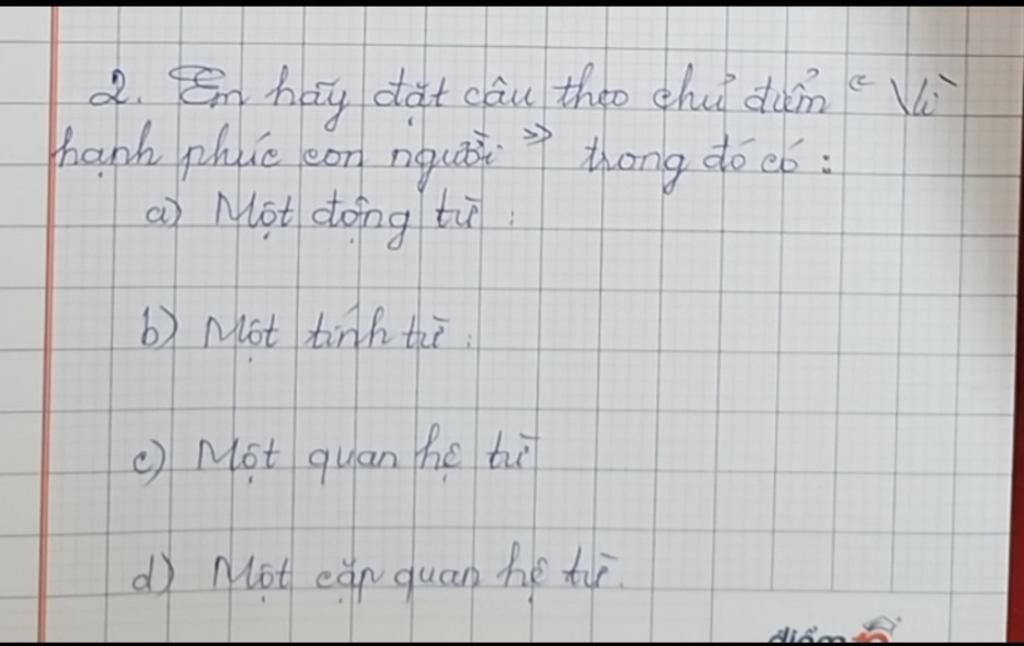 2. Em hãy đặt câu theo chủ điểm “Vì
hạnh phúc con người” trong đó có :
a) Một động từ :
b) Một tính từ :
c) Một quan hệ từ
d) Một cặp quan hệ từ.
điểm 10